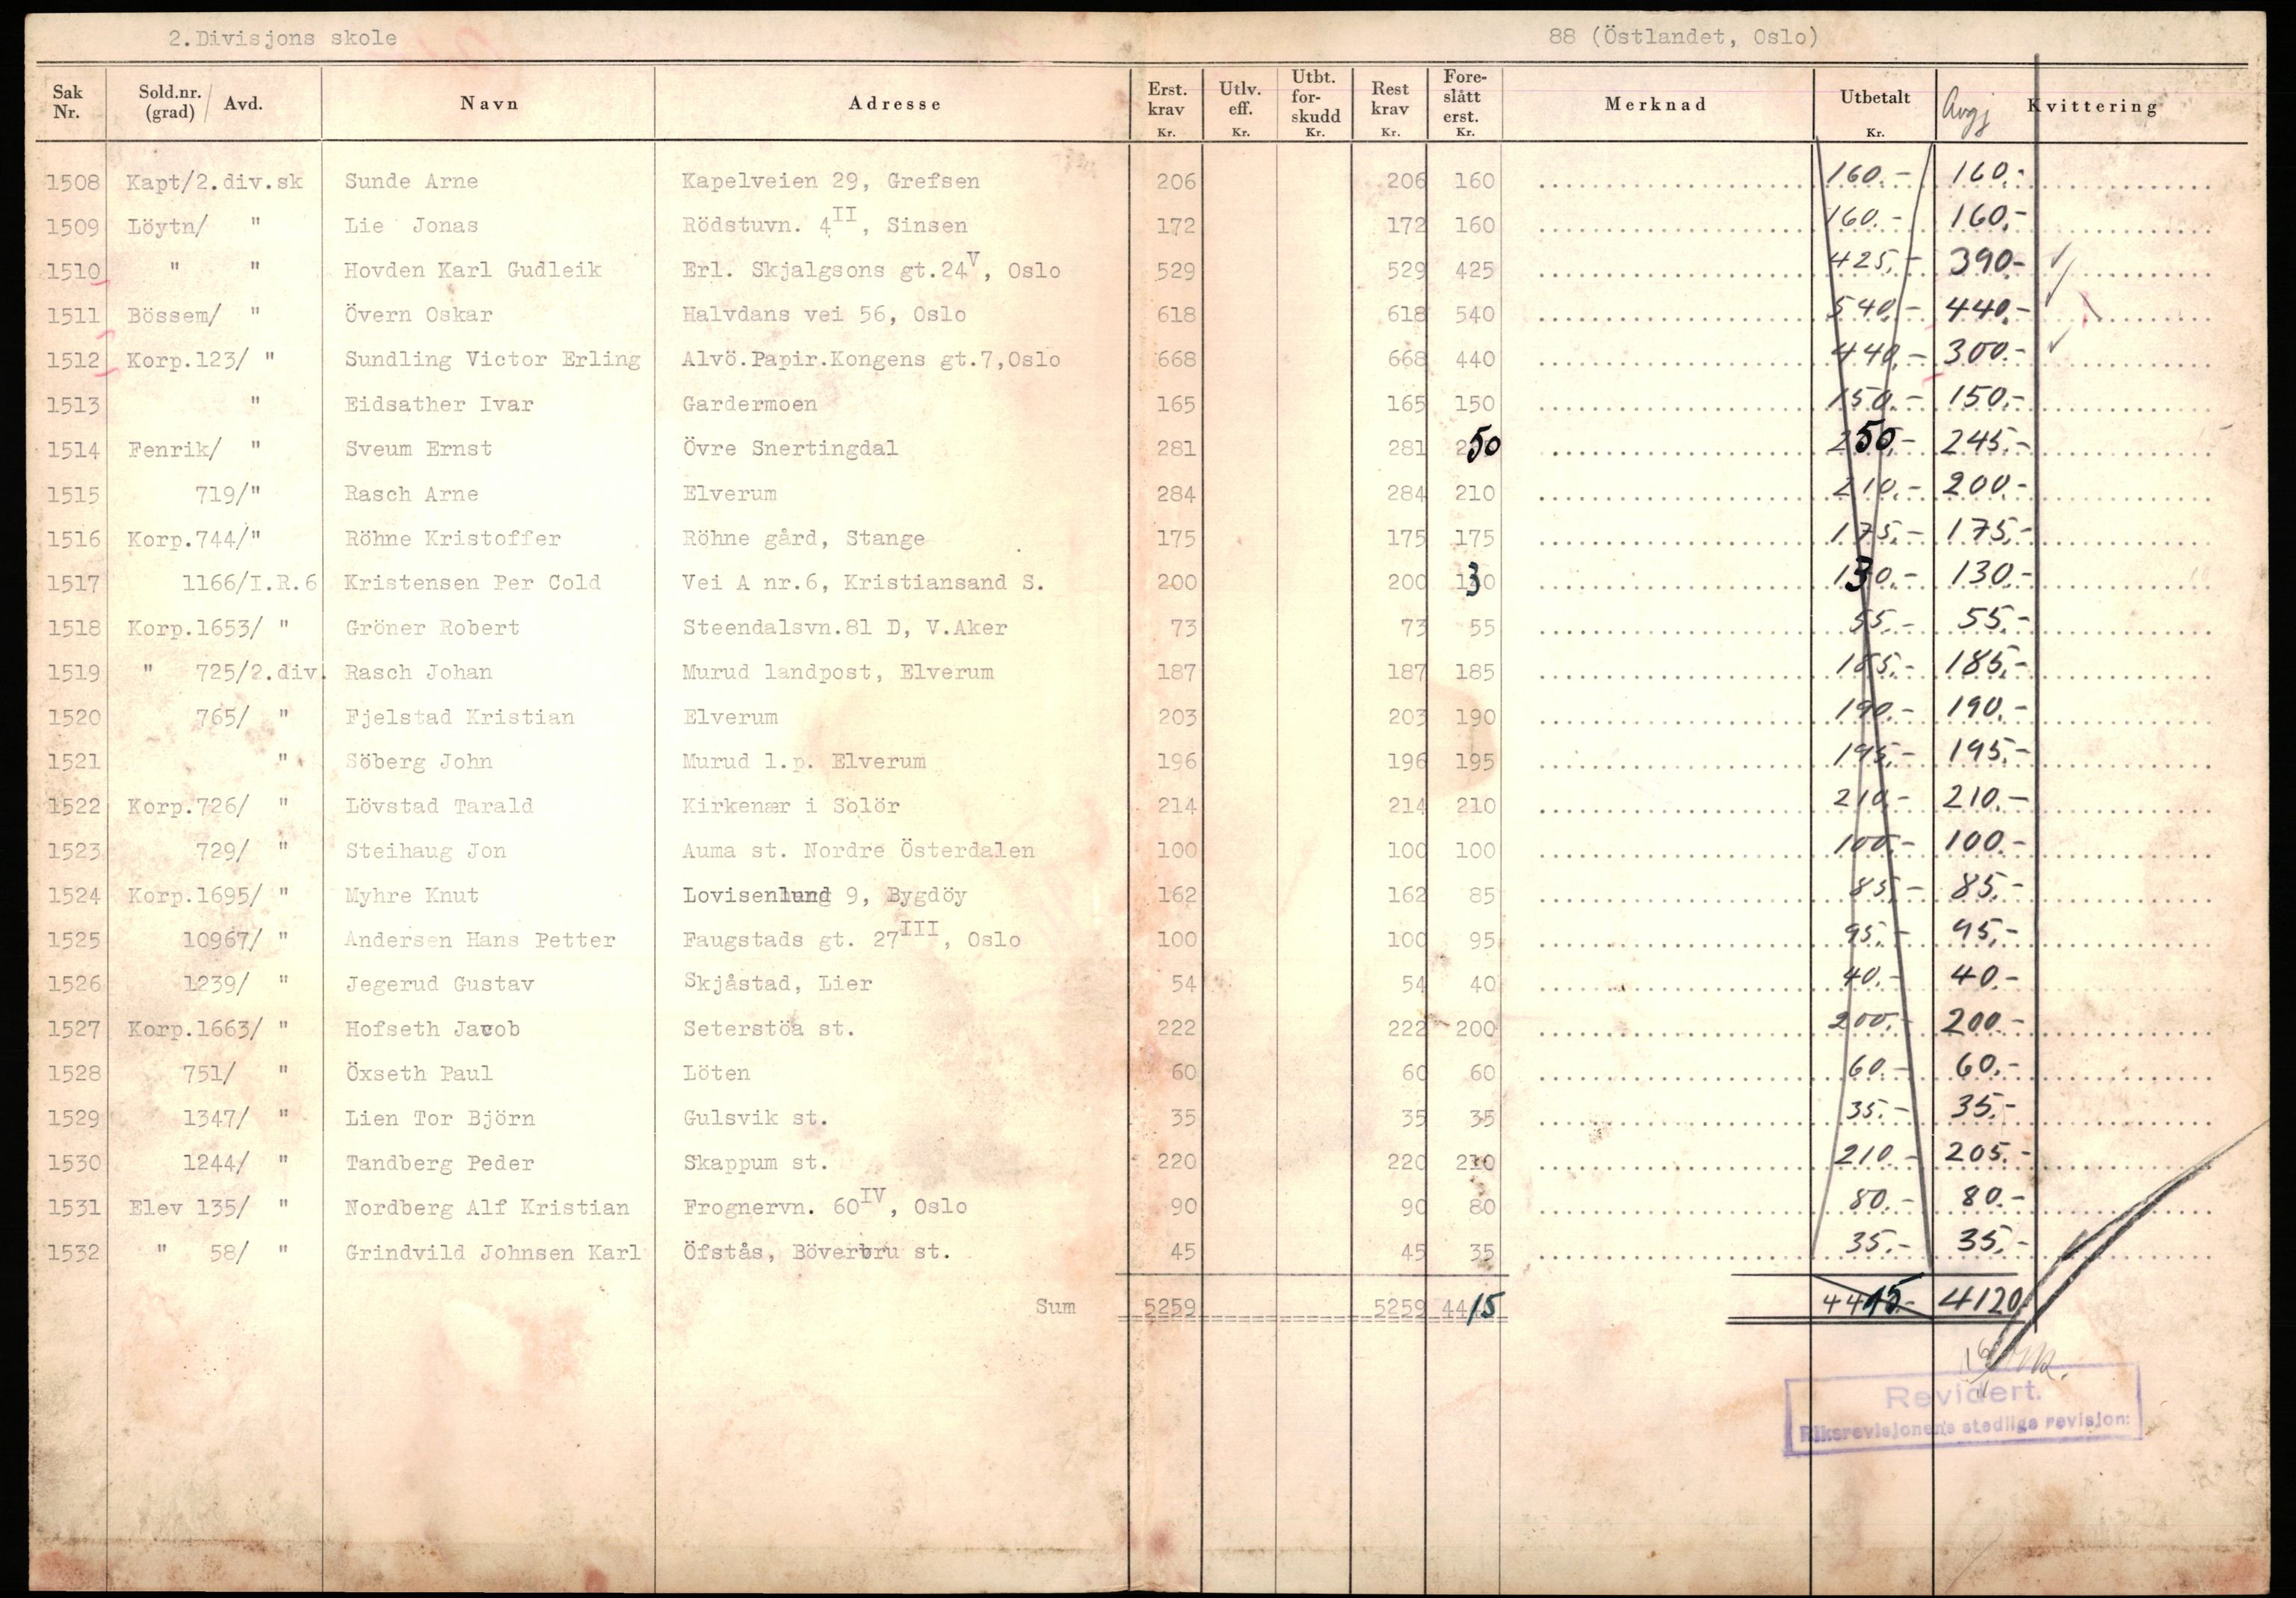 2.Divisjons skole 88 (Östlandet, Oslo)
Sak Nr. Sold.nr. (grad) / Avd. Navn Adresse Erst. krav Kr. Utlv. eff. Kr. Utbt. for- skudd Kr. Rest krav Kr. Fore- slått erst. Kr. Merknad Utbetalt Kr. Avgj Kvittering
1508 Kapt/2.div.sk Sunde Arne Kapelveien 29, Grefsen 206 206 160 160.- 160.-
1509 Löytn/ " Lie Jonas Rödstuvn. 4II, Sinsen 172 172 160 160.- 160.-
1510 " " Hovden Karl Gudleik Erl. Skjalgsons gt.24V, Oslo 529 529 425 425.- 390.- ✓
1511 Bössem/ " Övern Oskar Halvdans vei 56, Oslo 618 618 540 540.- 440.- ✓
1512 Korp.123/ " Sundling Victor Erling Alvö.Papir.Kongens gt.7,Oslo 668 668 440 440.- 300.- ✓
1513 " Eidsather Ivar Gardermoen 165 165 150 150.- 150.-
1514 Fenrik/ " Sveum Ernst Övre Snertingdal 281 281 250 250.- 245.-
1515 719/" Rasch Arne Elverum 284 284 210 210.- 200.-
1516 Korp.744/" Röhne Kristoffer Röhne gård, Stange 175 175 175 175.- 175.-
1517 1166/I.R.6 Kristensen Per Cold Vei A nr.6, Kristiansand S. 200 200 130 130.- 130.-
1518 Korp.1653/ " Gröner Robert Steendalsvn.81 D, V.Aker 73 73 55 55.- 55.-
1519 " 725/2.div. Rasch Johan Murud landpost, Elverum 187 187 185 185.- 185.-
1520 765/ " Fjelstad Kristian Elverum 203 203 190 190.- 190.-
1521 " Söberg John Murud l.p. Elverum 196 196 195 195.- 195.-
1522 Korp.726/ " Lövstad Tarald Kirkenær i Solör 214 214 210 210.- 210.-
1523 729/ " Steihaug Jon Auma st. Nordre Österdalen 100 100 100 100.- 100.-
1524 Korp.1695/ " Myhre Knut Lovisenlund 9, Bygdöy 162 162 85 85.- 85.-
1525 10967/ " Andersen Hans Petter Faugstads gt. 27III, Oslo 100 100 95 95.- 95.-
1526 1239/ " Jegerud Gustav Skjåstad, Lier 54 54 40 40.- 40.-
1527 Korp.1663/ " Hofseth Jacob Seterstöa st. 222 222 200 200.- 200.-
1528 751/ " Öxseth Paul Löten 60 60 60 60.- 60.-
1529 1347/ " Lien Tor Björn Gulsvik st. 35 35 35 35.- 35.-
1530 1244/ " Tandberg Peder Skappum st. 220 220 210 210.- 205.-
1531 Elev 135/ " Nordberg Alf Kristian Frognervn. 60IV, Oslo 90 90 80 80.- 80.-
1532 " 58/ " Grindvild Johnsen Karl Öfstås, Böverbru st. 45 45 35 35.- 35.-
Sum 5259 5259 4415 4415.- 4120
Revidert.
Riksrevisjonens stedlige revisjon: